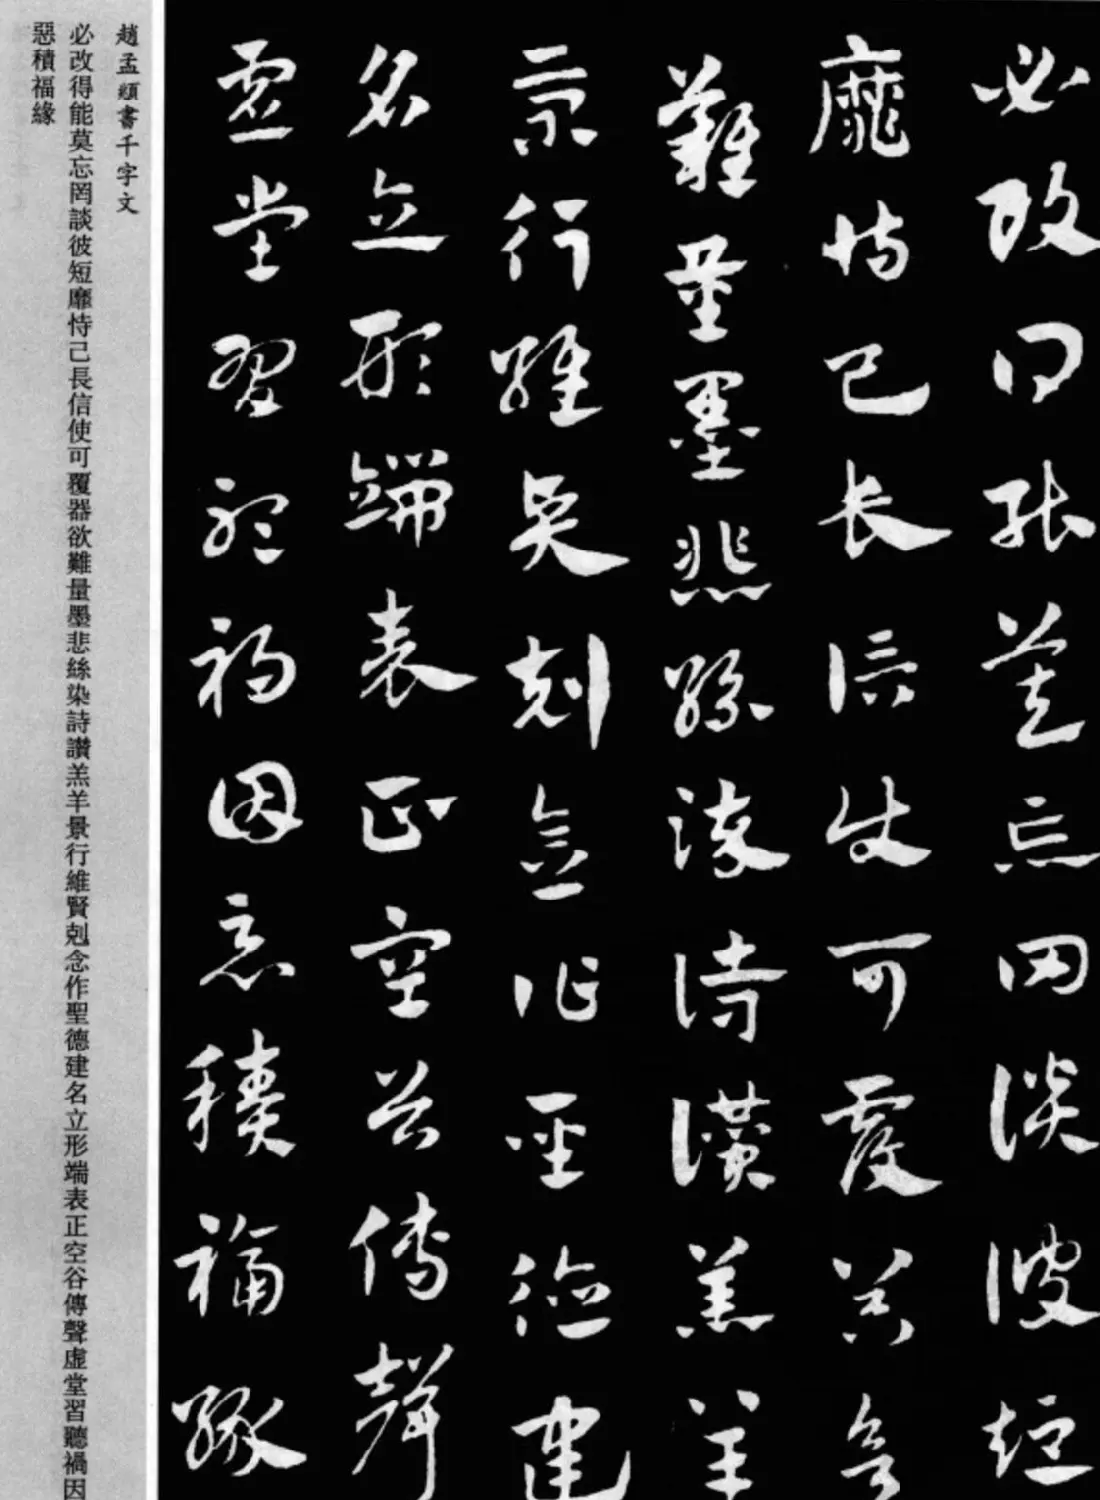 必改得能莫忘罔談彼短
靡恃己長信使可覆器欲
難量墨悲絲染詩讚羔羊
景行維賢剋念作聖德建
名立形端表正空谷傳聲
虛堂習聽禍因惡積福緣
趙孟頫書千字文
必改得能莫忘罔談彼短靡恃己長信使可覆器欲難量墨悲絲染詩讚羔羊景行維賢剋念作聖德建名立形端表正空谷傳聲虛堂習聽禍因
惡積福緣